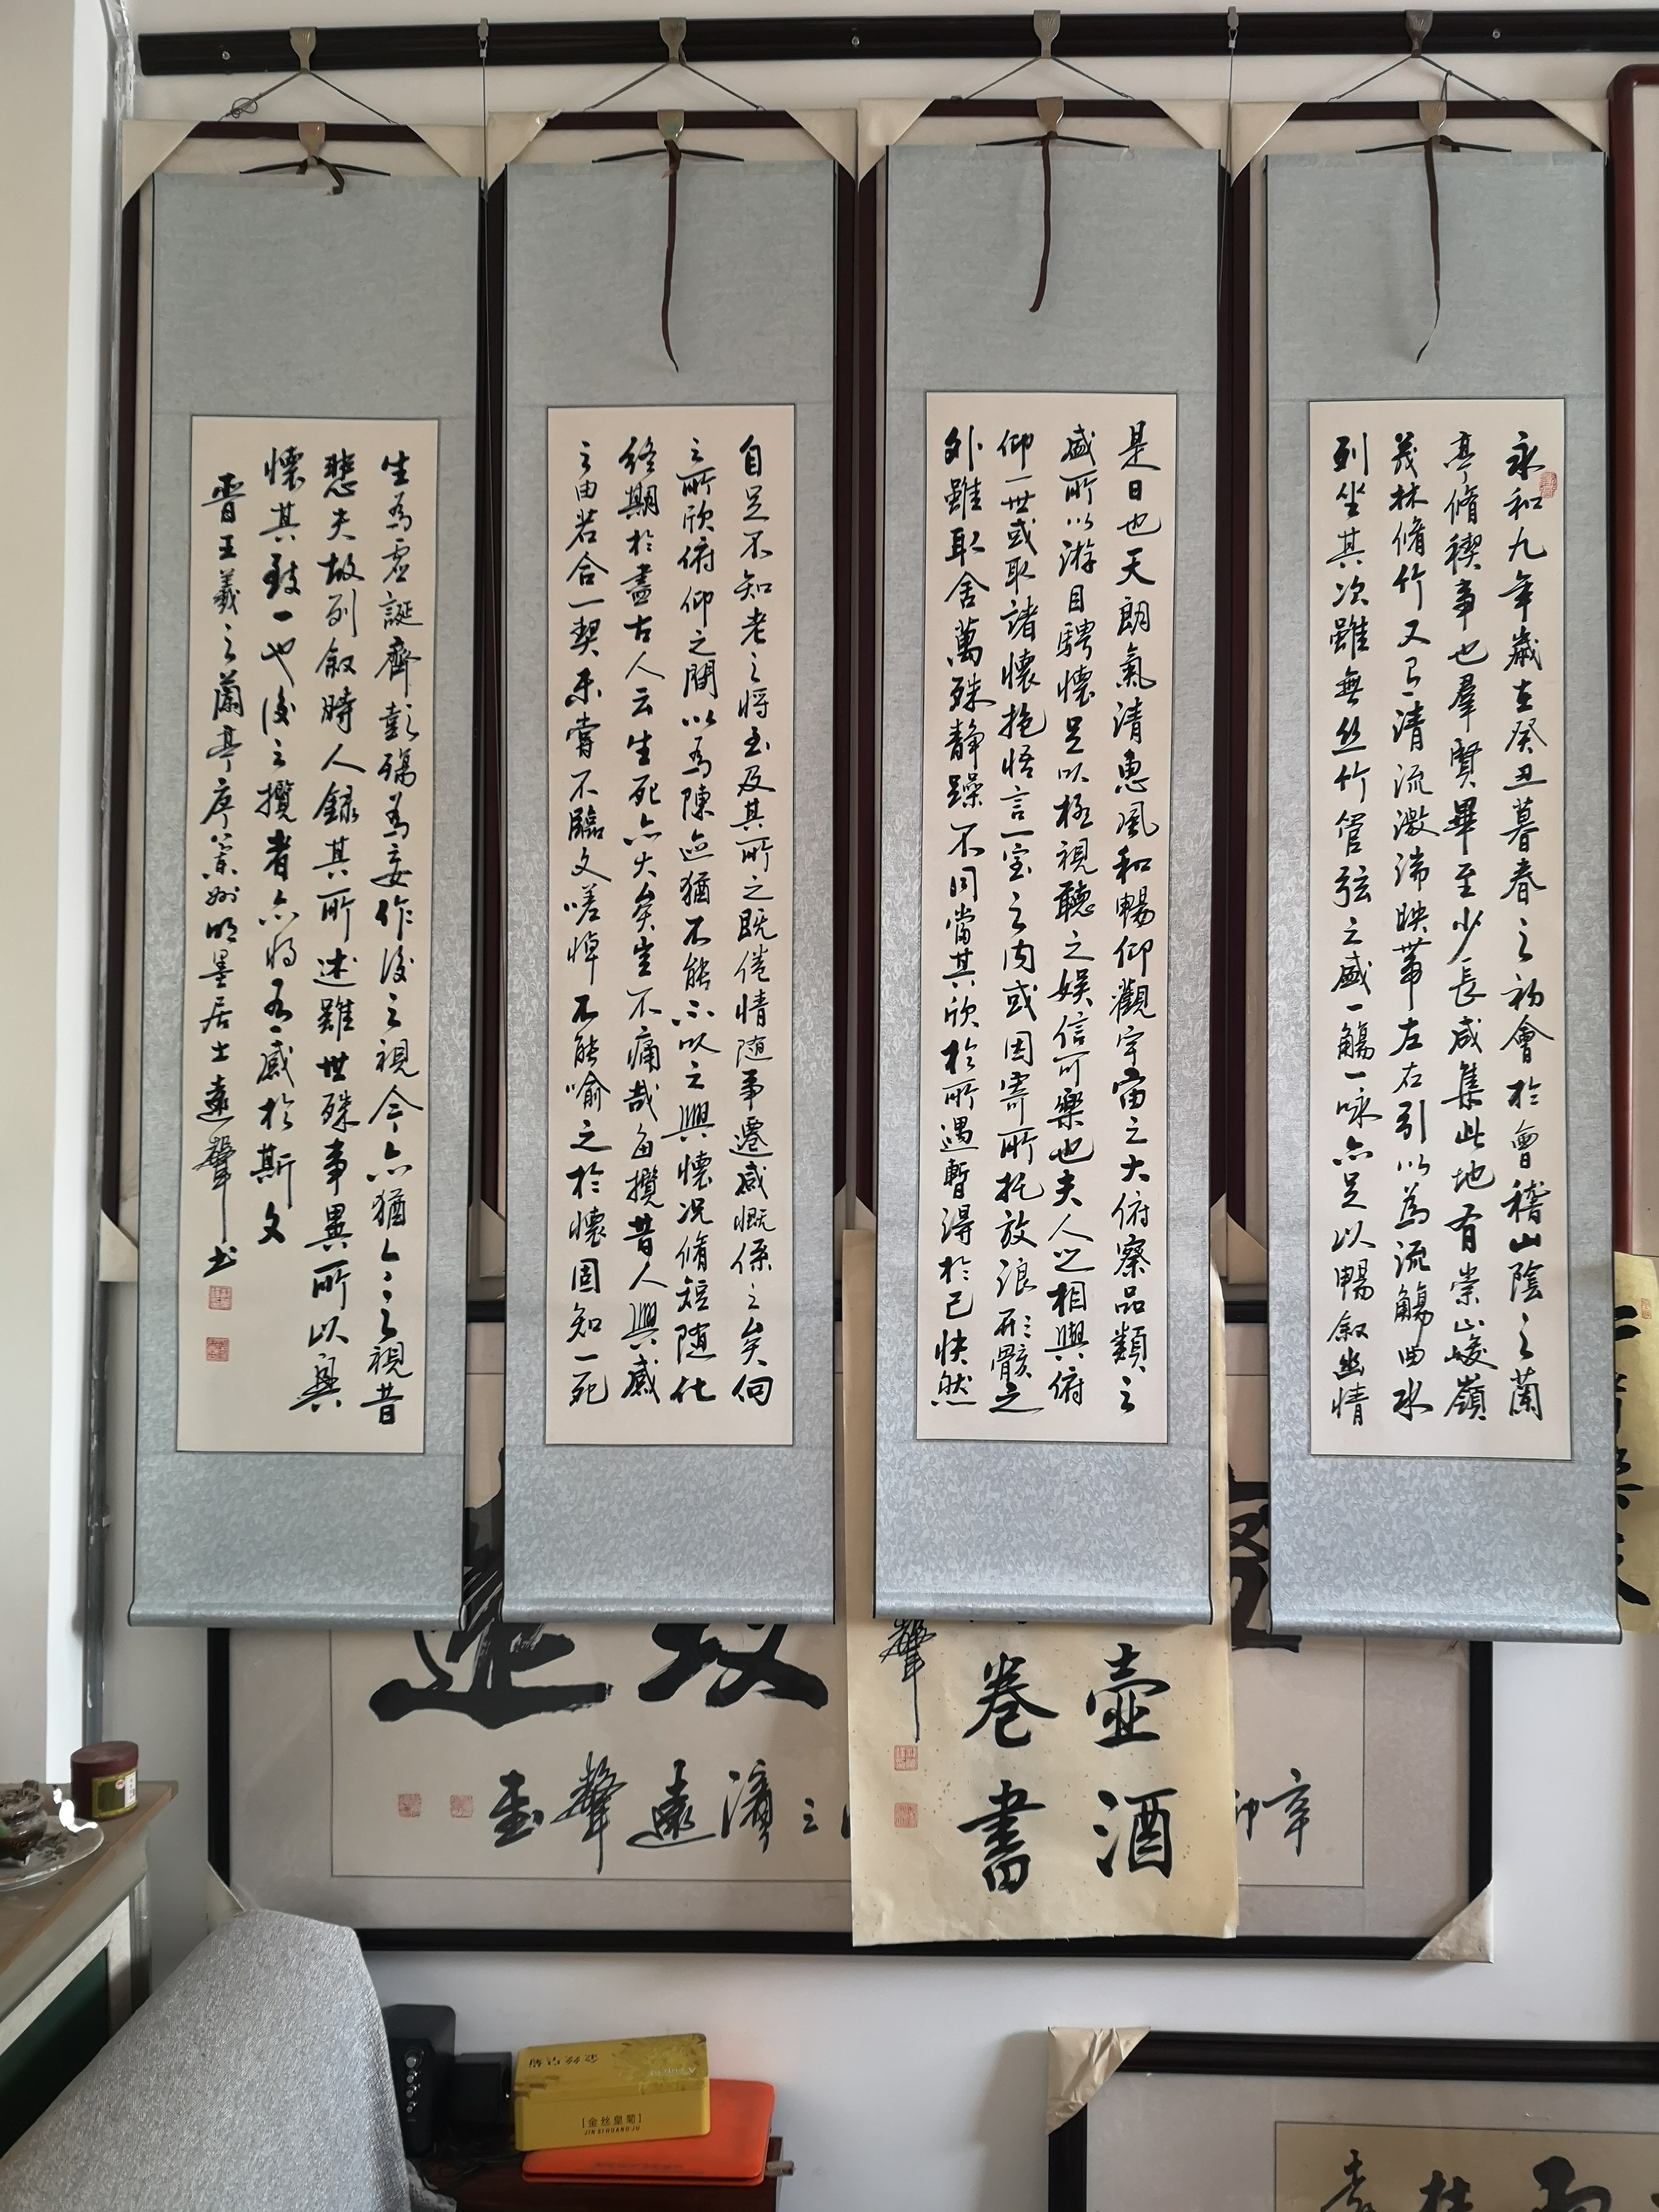 永和九年歲在癸丑暮春之初會於會稽山陰之蘭
亭脩稧事也羣賢畢至少長咸集此地有崇山峻嶺
茂林脩竹又有清流激湍映帶左右引以為流觴曲水
列坐其次雖無絲竹管弦之盛一觴一詠亦足以暢敘幽情
是日也天朗氣清惠風和暢仰觀宇宙之大俯察品類之
盛所以游目騁懷足以極視聽之娛信可樂也夫人之相與俯
仰一世或取諸懷抱悟言一室之內或因寄所托放浪形骸之
外雖取舍萬殊靜躁不同當其欣於所遇暫得於己快然
自足不知老之將至及其所之既倦情随事遷感慨係之矣向
之所欣俯仰之間以為陳迹猶不能不以之興懷況脩短随化
終期於盡古人云生死亦大矣豈不痛哉每攬昔人興感
之由若合一契未嘗不臨文嗟悼不能喻之於懷固知一死
生為虛誕齊彭殤為妄作後之視今亦猶今之視昔
悲夫故列敘時人錄其所述雖世殊事異所以興
懷其致一也後之攬者亦將有感於斯文
晉王羲之蘭亭序 明墨居士遠聲书
壺酒
卷書
聲
辛卯
之濱遠聲書
[金丝皇菊]
JIN SI HUANG JU